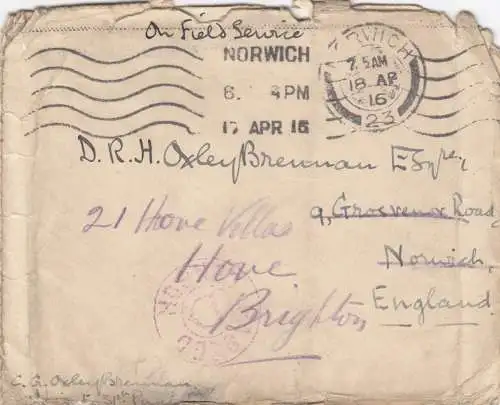 On Field Service
NORWICH
6. PM
17 APR 16
NORWICH
7.5AM
18 AP
16
23
D. R. H. Oxley Brennan Esqre,
9, Grosvenor Road,
Norwich,
England
21 Hove Villas
Hove
Brighton
C. G. Oxley Brennan